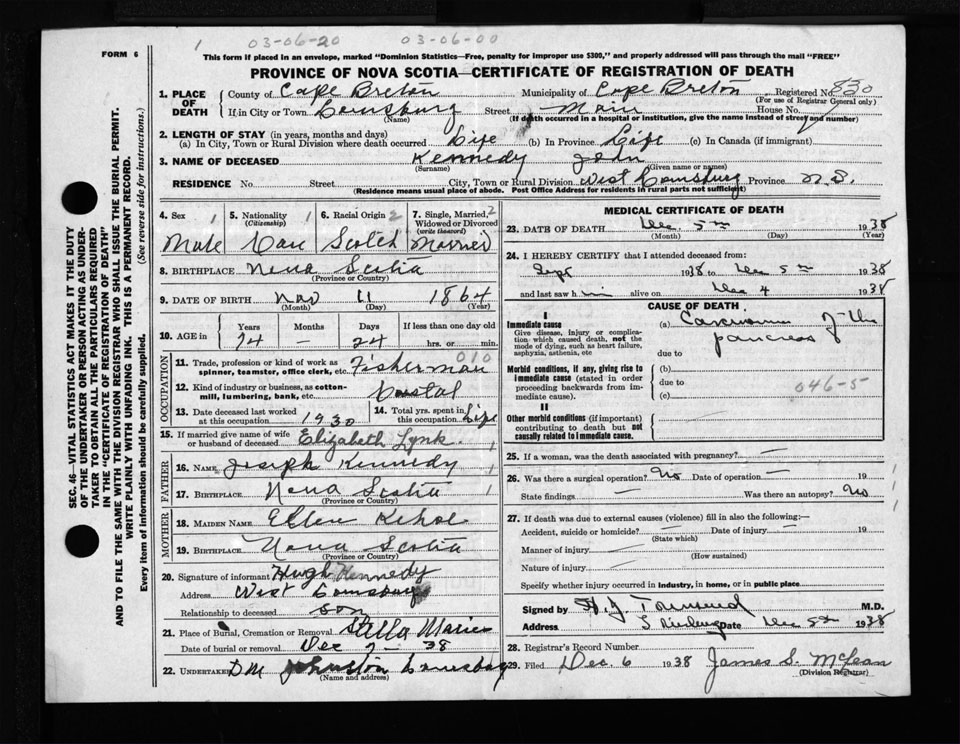 1 03-06-20 03-06-00
FORM 6
This form if placed in an envelope, marked "Dominion Statistics—Free, penalty for improper use $300," and properly addressed will pass through the mail "FREE"
PROVINCE OF NOVA SCOTIA—CERTIFICATE OF REGISTRATION OF DEATH
1. PLACE OF DEATH County of Cape Breton Municipality of Cape Breton Registered No. 830
(For use of Registrar General only)
If in City or Town Louisburg Street Main House No.
(Name) (If death occurred in a hospital or institution, give the name instead of street and number)
2. LENGTH OF STAY (in years, months and days)
(a) In City, Town or Rural Division where death occurred Life (b) In Province Life (c) In Canada (if immigrant)
3. NAME OF DECEASED Kennedy John
(Surname) (Given name or names)
RESIDENCE No. Street City, Town or Rural Division West Louisburg Province N.S.
(Residence means usual place of abode. Post Office Address for residents in rural parts not sufficient)
SEC. 46—VITAL STATISTICS ACT MAKES IT THE DUTY
OF THE UNDERTAKER OR PERSON ACTING AS UNDER-
TAKER TO OBTAIN ALL THE PARTICULARS REQUIRED
IN THE "CERTIFICATE OF REGISTRATION OF DEATH"
AND TO FILE THE SAME WITH THE DIVISION REGISTRAR WHO SHALL ISSUE THE BURIAL PERMIT.
WRITE PLAINLY WITH UNFADING INK. THIS IS A PERMANENT RECORD.
Every item of information should be carefully supplied. (See reverse side for instructions.)
4. Sex 1 Male
5. Nationality 1 (Citizenship) Can
6. Racial Origin 2 Scotch
7. Single, Married, 2 Widowed or Divorced (write the word) Married
8. BIRTHPLACE Nova Scotia
(Province or Country)
9. DATE OF BIRTH Nov 11 1864
(Month) (Day) (Year)
10. AGE in Years Months Days If less than one day
74 — 24 hrs. or min.
OCCUPATION
11. Trade, profession or kind of work as spinner, teamster, office clerk, etc. Fisherman 010
12. Kind of industry or business, as cotton-mill, lumbering, bank, etc. Coastal
13. Date deceased last worked at this occupation 1930
14. Total yrs. spent in this occupation Life
15. If married give name of wife or husband of deceased Elizabeth Lynk
FATHER
16. NAME Joseph Kennedy
17. BIRTHPLACE Nova Scotia
(Province or Country)
MOTHER
18. MAIDEN NAME Ellen Kehoe
19. BIRTHPLACE Nova Scotia
(Province or Country)
20. Signature of informant Hugh Kennedy
Address West Louisburg
Relationship to deceased Son
21. Place of Burial, Cremation or Removal Stella Maris
Date of burial or removal Dec 7 - 38
22. UNDERTAKER D M Johnston Louisburg
(Name and address)
MEDICAL CERTIFICATE OF DEATH
23. DATE OF DEATH Dec. 5th 1938
(Month) (Day) (Year)
24. I HEREBY CERTIFY that I attended deceased from:
Sept 1938 to Dec 5th 1938
and last saw him alive on Dec 4 1938
CAUSE OF DEATH
I
Immediate cause (a) Carcinoma of the pancreas
Give disease, injury or complication which caused death, not the mode of dying, such as heart failure, asphyxia, asthenia, etc
due to
Morbid conditions, if any, giving rise to immediate cause (stated in order proceeding backwards from immediate cause).
(b)
due to 046-5
(c)
II
Other morbid conditions (if important) contributing to death but not causally related to immediate cause.
25. If a woman, was the death associated with pregnancy? —
26. Was there a surgical operation? No Date of operation — 19
State findings — Was there an autopsy? No
27. If death was due to external causes (violence) fill in also the following:—
Accident, suicide or homicide? — Date of injury — 19
(State which)
Manner of injury —
(How sustained)
Nature of injury —
Specify whether injury occurred in industry, in home, or in public place
Signed by H. J. Townsend M.D.
Address Date Dec 5th 1938
28. Registrar's Record Number
29. Filed Dec. 6 1938 James S. McLean
(Division Registrar)